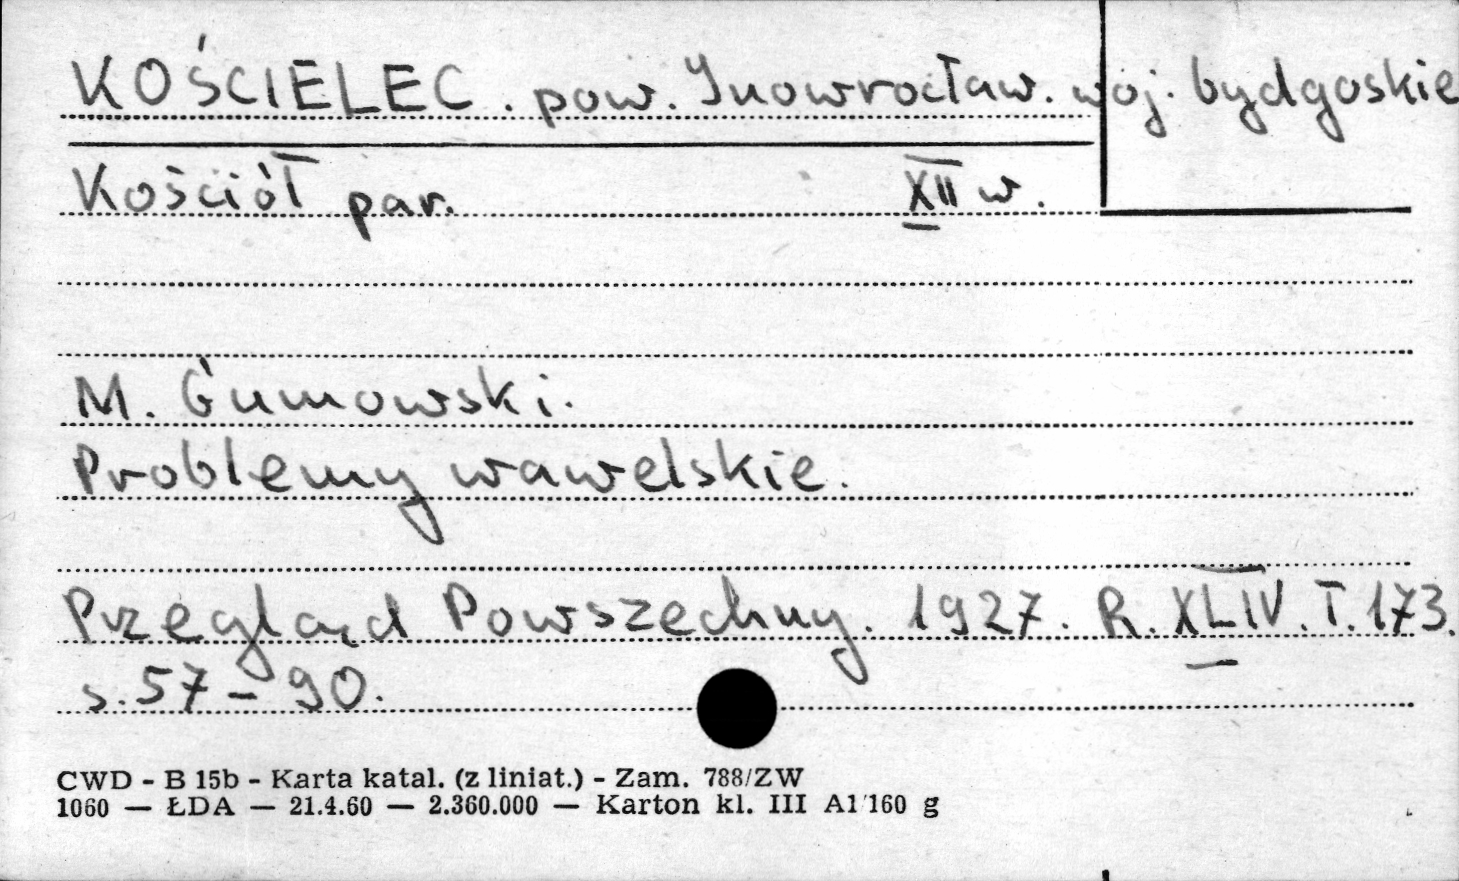 KOŚCIELEC. pow. Inowrocław. woj. bydgoskie
Kościół par. XII w.
M. Gumowski.
Problemy wawelskie.
Przegląd Powszechny. 1927. R. XLIV. T. 173.
s. 57 - 90.
CWD - B 15b - Karta katal. (z liniat.) - Zam. 788/ZW
1060 — ŁDA — 21.4.60 — 2.360.000 — Karton kl. III A1/160 g